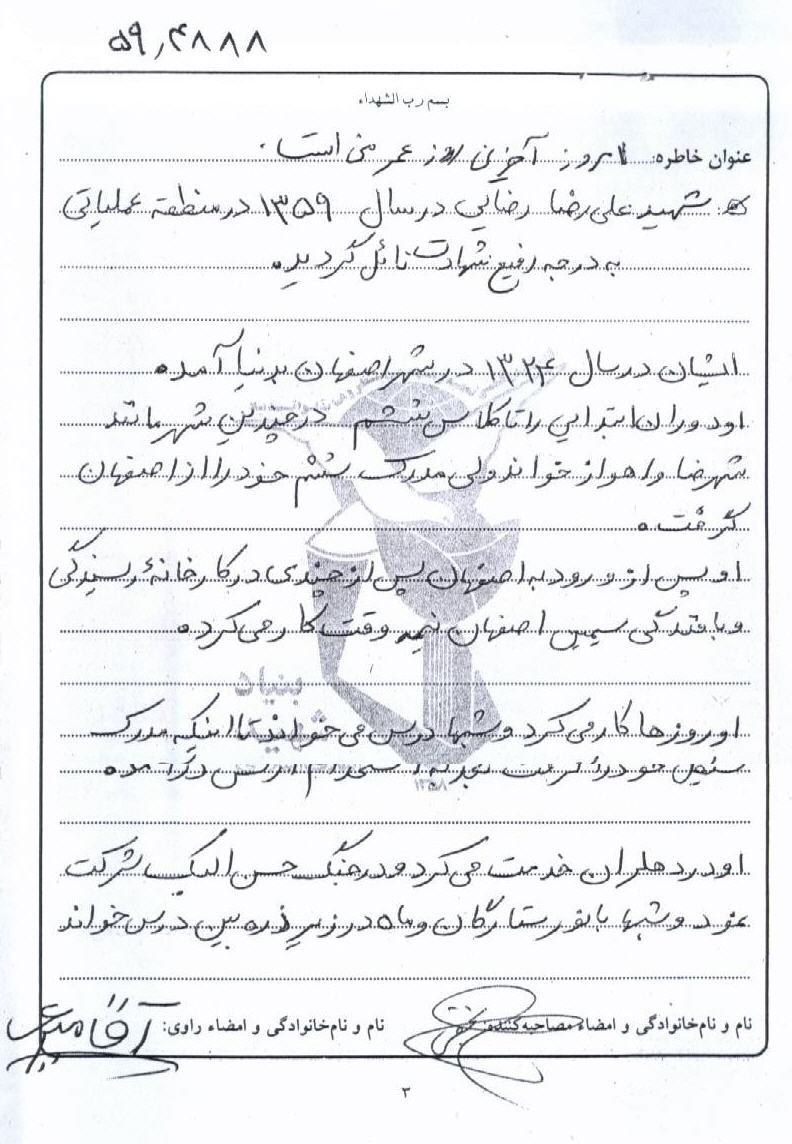 ۵۹٫۴۸۸۸
بسم رب الشهداء
عنوان خاطره: امروز آخرین روز عمر من است.
شهید علی رضا رضایی در سال ۱۳۵۹ در منطقه عملیاتی
به درجه رفیع شهادت نائل گردید.
ایشان در سال ۱۳۲۴ در شهر اصفهان بدنیا آمده
او دوران ابتدایی را تا کلاس ششم در چندین شهر مانند
شهرضا و اهواز خواند ولی مدرک ششم خود را از اصفهان
گرفت.
او پس از ورود به اصفهان پس از چندی در کارخانهٔ ریسندگی
و بافندگی سیمین اصفهان نیمه وقت کار می کرد.
او روزها کار می کرد و شبها درس می خواند تا اینکه مدرک
خود را گرفت
او در دهلران خدمت می کرد و در جنگ شرکت
نمود و شبها با نور ستارگان و ماه در زیر ذره بین درس خواند
نام و نام خانوادگی و امضاء مصاحبه کننده:
نام و نام خانوادگی و امضاء راوی:
بنیاد
شهید
۱۳۵۸
۳